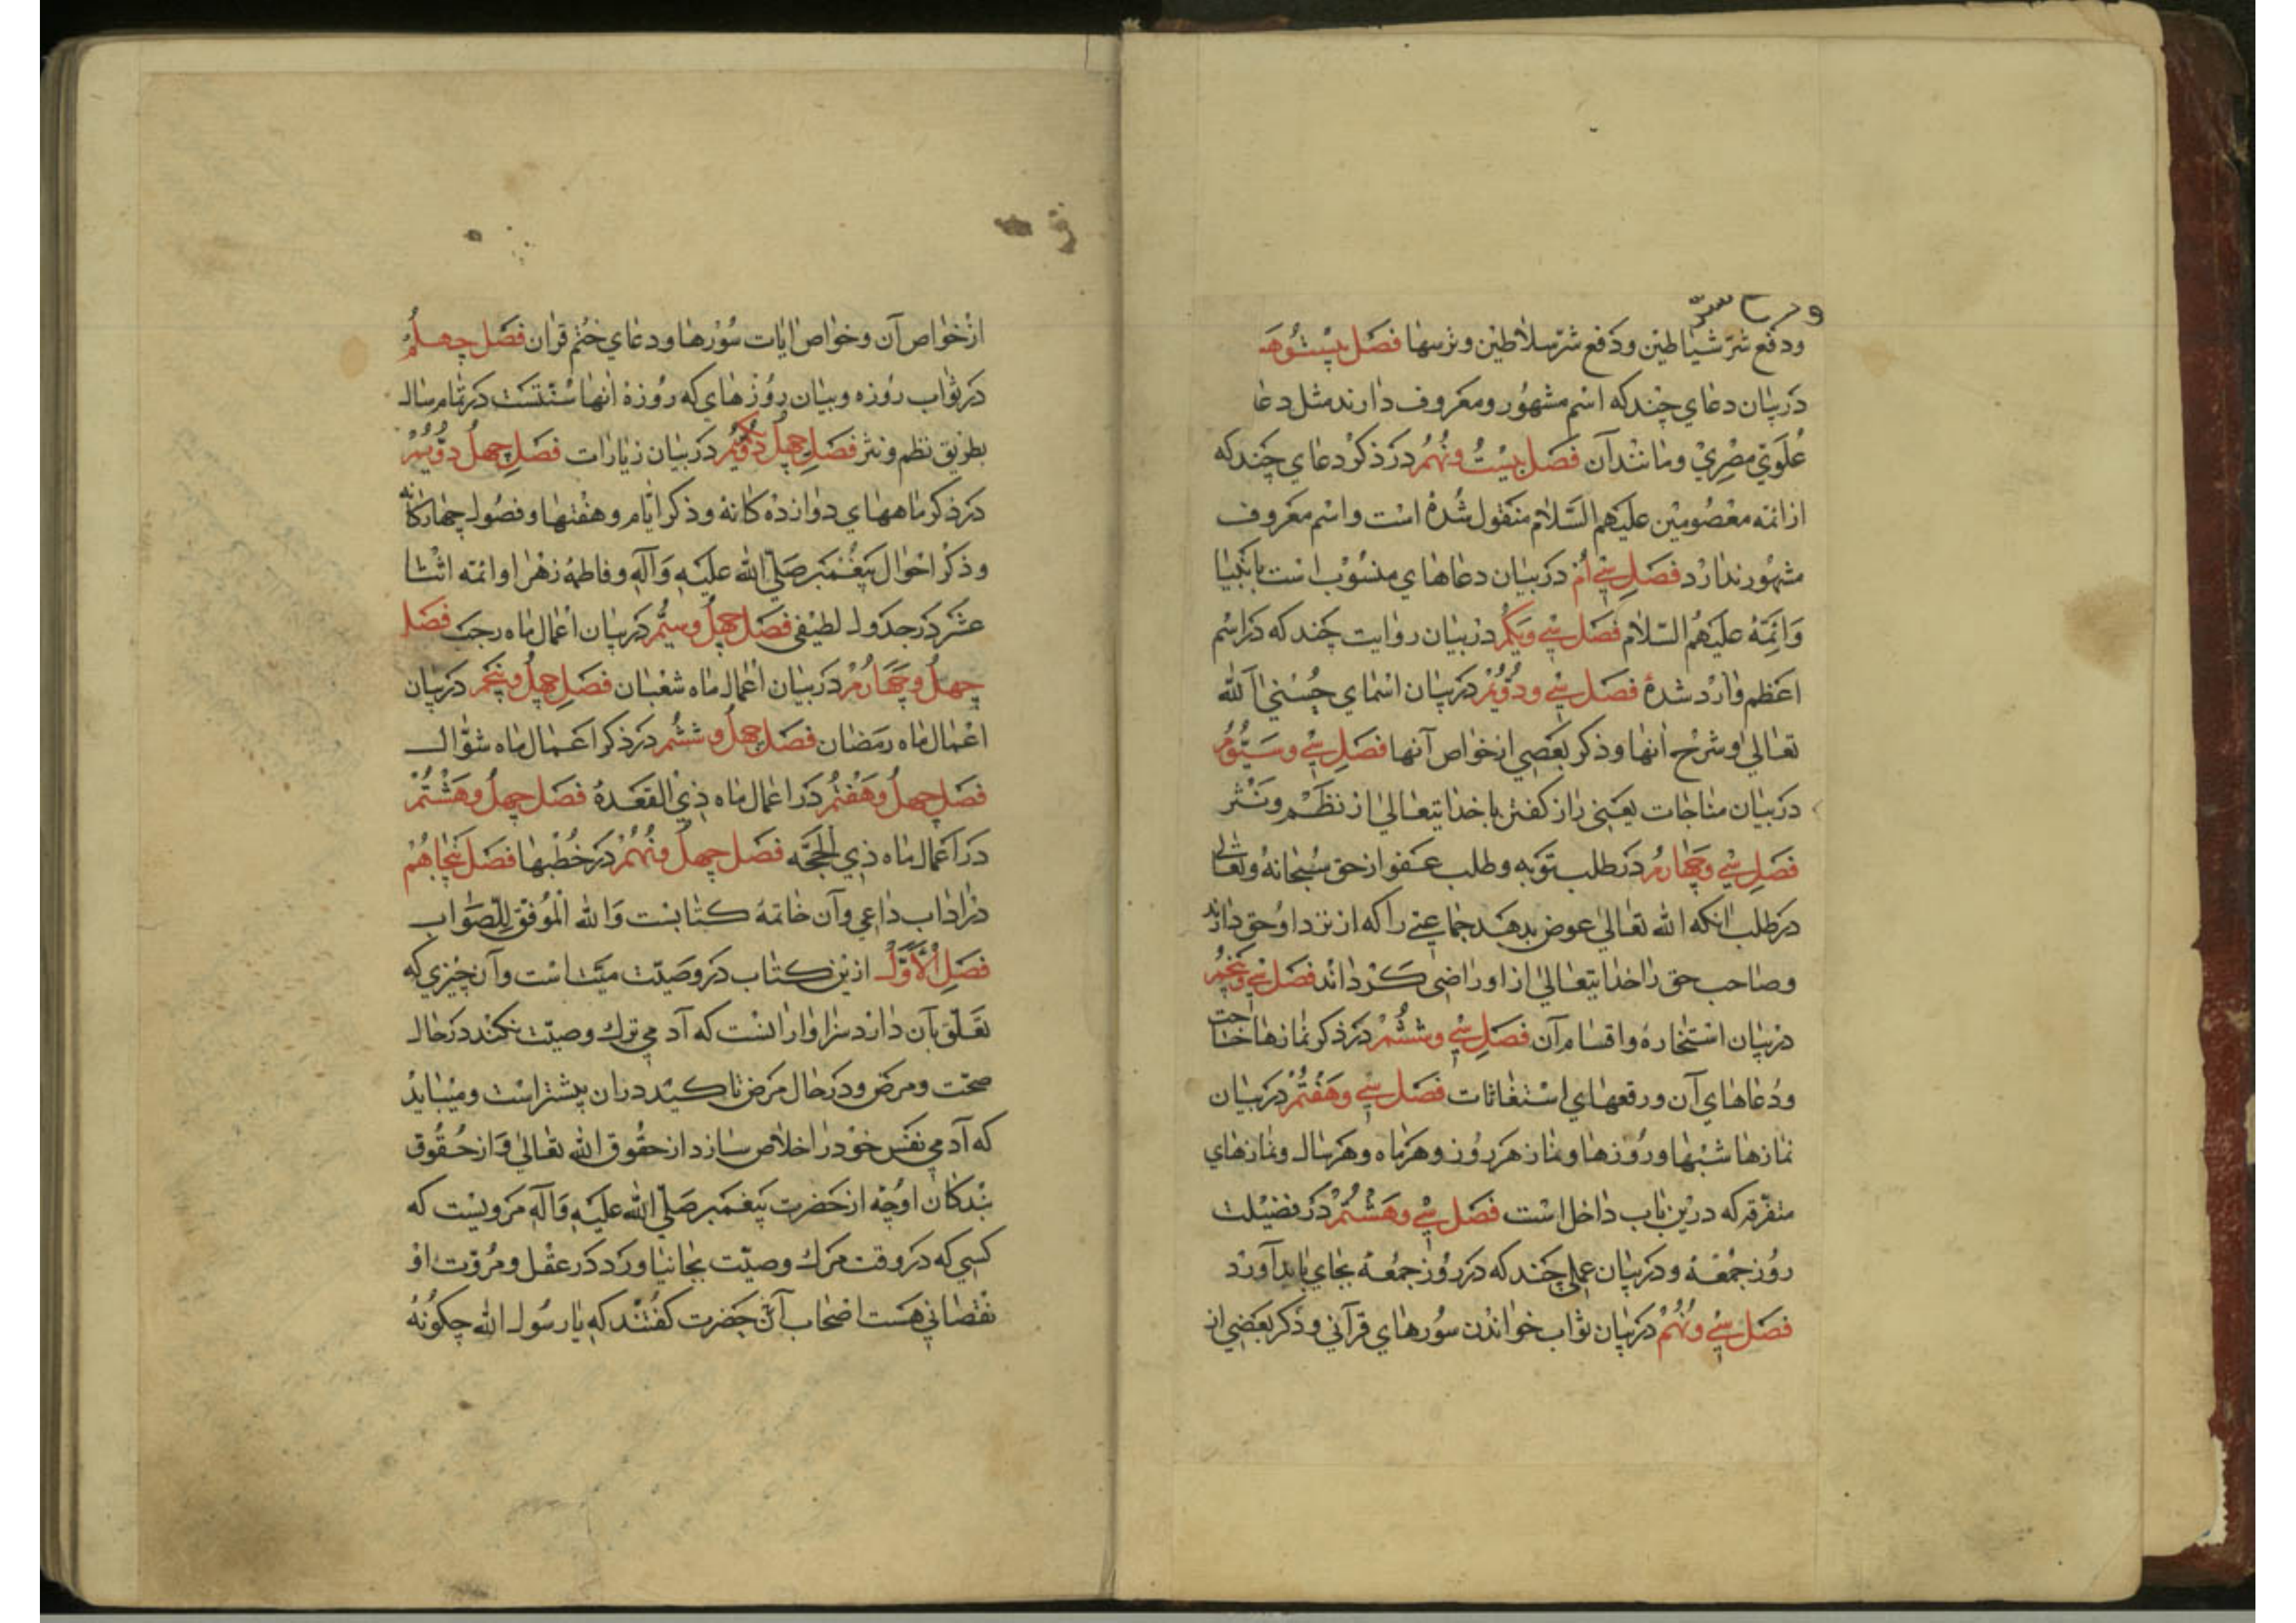 ودفع شرّ شیاطین ودفع شرّ سلاطین وترسها فصل بیست وه
در بیان دعای چند که اسم مشهور ومعروف دارند مثل دعا
علوی مصری ومانند آن فصل بیست ونهم در ذکر دعای چند که
از ائمه معصومین علیهم السلام منقول شده است واسم معروف
مشهور ندارد فصل سی ام در بیان دعاهای منسوب است بانبیا
وائمّه علیهم السلام فصل سی ویکم در بیان روایت چند که در اسم
اعظم وارد شده فصل سی ودوّیم در بیان اسمای حسنی الله
تعالی وشرح انها وذکر بعضی از خواص آنها فصل سی وسیّوم
در بیان مناجات یعنی راز کفتن با خدایتعالی از نظم ونثر
فصل سی وچهارم در طلب توبه وطلب عفو از حق سبحانه وتعالی
در طلب انکه الله تعالی عوض بدهد جماعتی را که از نزد او حق دارند
وصاحب حق را خدایتعالی از او راضی کرداند فصل سی وپنجم
در بیان استخاره واقسام آن فصل سی وششم در ذکر نمازها حاجت
ودعاهای آن ورقعهای استغاثات فصل سی وهفتم در بیان
نمازها شبها وروزها ونماز هر روز وهر ماه وهر سال ونمازهای
متفرقه که درین باب داخل است فصل سی وهشتم در فضیلت
روز جمعه ودر بیان عملی چند که در روز جمعه بجای باید آورد
فصل سی ونهم در بیان ثواب خواندن سورهای قرآنی وذکر بعضی از
از خواص آن وخواص ایات سورها ودعای ختم قران فصل چهلم
در ثواب روزه وبیان روزهای که روزه انها سنتست در تمام سال
بطریق نظم ونثر فصل چهل یکم در بیان زیارات فصل چهل دوّیم
در ذکر ماههای دوازده کانه وذکر ایّام وهفتها وفصول چهارکانه
وذکر احوال پیغمبر صلّی الله علیه وآله وفاطمه زهرا وائمه اثنا
عشر در جدول لطیفی فصل چهل وسیّم در بیان اعمال ماه رجب فصل
چهل وچهارم در بیان اعمال ماه شعبان فصل چهل وپنجم در بیان
اعمال ماه رمضان فصل چهل وششم در ذکر اعمال ماه شوّال
فصل چهل وهفتم در اعمال ماه ذی القعده فصل چهل وهشتم
در اعمال ماه ذی الحجّه فصل چهل ونهم در خطبها فصل پنجاهم
در اداب داعی وآن خاتمه کتابست والله الموفق للصّواب
فصل الأوّل ازین کتاب در وصیّت میّت است وآن چیزی که
تعلّق بآن دارد سزاوار انست که آدمی ترك وصیّت نکند در حال
صحّت ومرض ودر حال مرض تاکید دران پیشتر است ومیباید
که آدمی نفس خود را خلاص سازد از حقوق الله تعالی واز حقوق
بندکان او چه از حضرت پیغمبر صلّی الله علیه وآله مرویست که
کسی که در وقت مرك وصیّت بجا نیاورد در عقل ومروّت او
نقصانی هست اصحاب آن حضرت کفتند که یا رسول الله چکونه